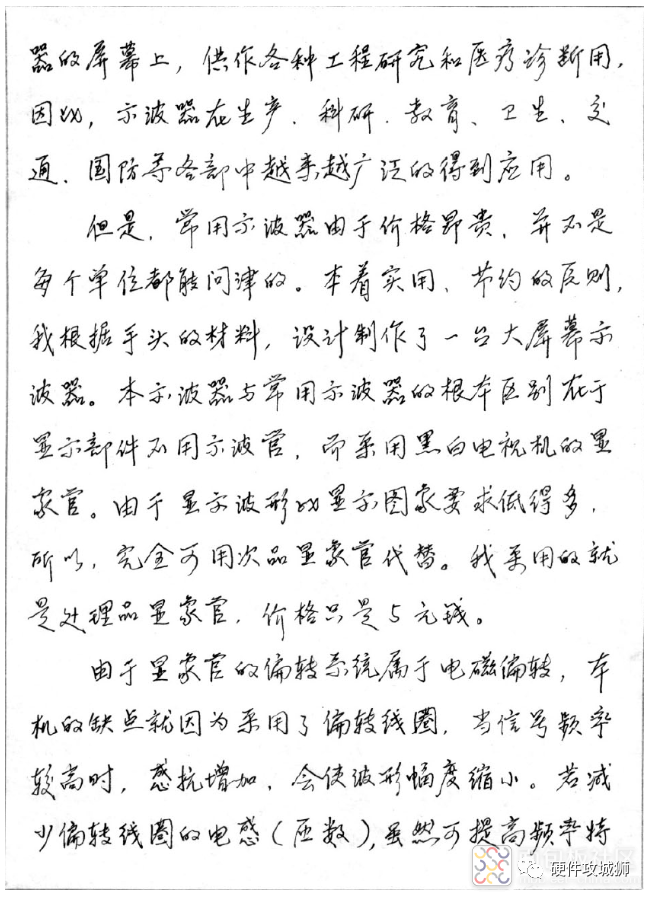 器的屏幕上，供作各种工程研究和医疗诊断用，
因此，示波器在生产、科研、教育、卫生、交
通、国防等各部中越来越广泛的得到应用。
但是，常用示波器由于价格昂贵，并不是
每个单位都能问津的。本着实用、节约的原则，
我根据手头的材料，设计制作了一台大屏幕示
波器。本示波器与常用示波器的根本区别在于
显示部件不用示波管，而采用黑白电视机的显
象管。由于显示波形比显示图象要求低得多，
所以，完全可用次品显象管代替。我采用的就
是处理品显象管，价格只是5元钱。
由于显象管的偏转系统属于电磁偏转，本
机的缺点就因为采用了偏转线圈，当信号频率
较高时，感抗增加，会使波形幅度缩小。若减
少偏转线圈的电感（匝数），虽然可提高频率特
硬件攻城狮